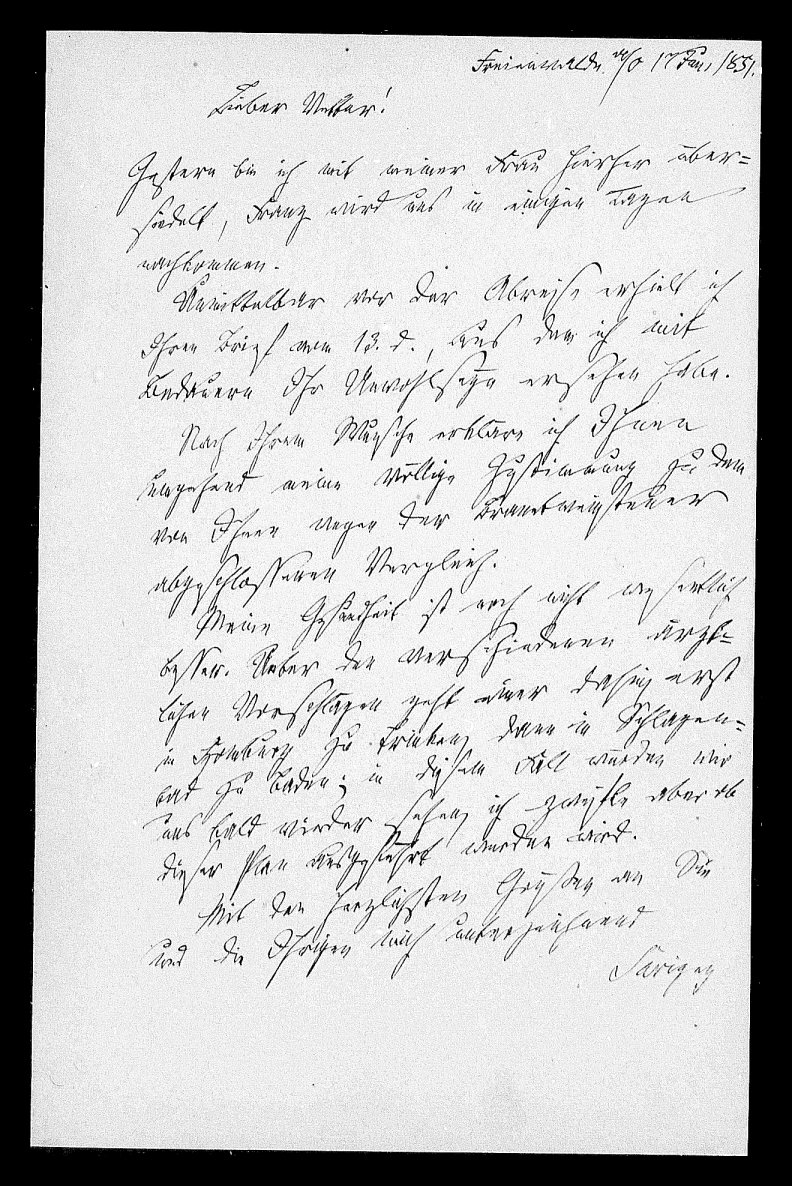 Freienwalde a/O 17 Juni 1851.
Lieber Vetter!
Gestern bin ich mit meiner Frau hierher über=
siedelt, Franz wird uns in einigen Tagen
nachkommen.
Unmittelbar vor der Abreise erhielt ich
Ihren Brief vom 13. d., aus dem ich mit
Bedauern Ihr Unwohlseyn ersehen habe.
Nach Ihrem Wunsche erkläre ich Ihnen
umgehend meine völlige Zustimmung zu dem
von Ihnen wegen der Branntweinsteuer
abgeschlossenen Vergleich.
Meine Gesundheit ist noch nicht wesentlich
besser. Ueber den verschiedenen ärzt=
lichen Vorschlägen geht einer dahin, erst
in Homburg zu trinken, dann in Schlangen=
bad zu baden; in diesem Fall würden wir
uns bald wieder sehen, ich zweifle aber ob
dieser Plan ausgeführt werden wird.
Mit den herzlichsten Grüßen an Sie
und die Ihrigen mich unterzeichnend
Savigny